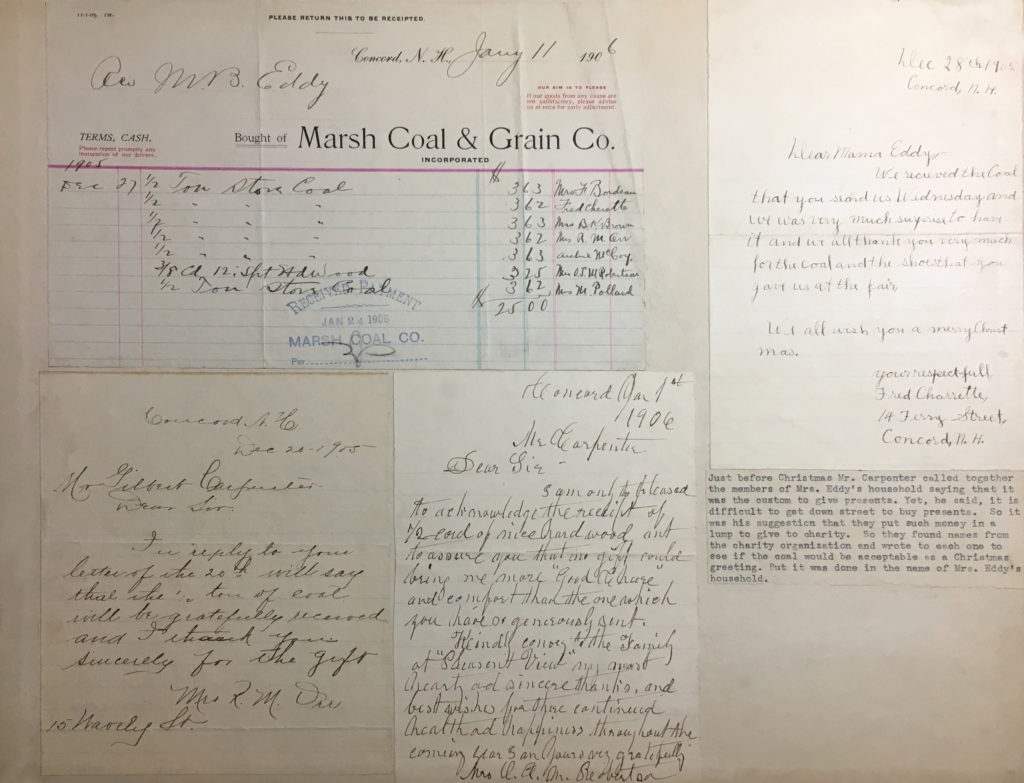 PLEASE RETURN THIS TO BE RECEIPTED.
Concord, N. H., Jany 11 1906
M. B. Eddy
OUR AIM IS TO PLEASE
If our goods from any cause are
not satisfactory, please advise
us at once for early adjustment.
TERMS, CASH.
Please report promptly any
inattention of our drivers.
Bought of Marsh Coal & Grain Co.
INCORPORATED
1905
Dec 27 1/2 Ton Stove Coal 3 63 Mrs F. Bordeau
1/2 " " " 3 62 Fred
1/2 " " " 3 63 Mrs B. F. Brown
1/2 " " " 3 62 Mrs R. M. Orr
1/2 " " " 3 63 McCoy
12 in Split Hd Wood 3 25 Mrs Robertson
1/2 Ton Stove Coal 3 62 Mrs M Pollard
$ 25 00
RECEIVED PAYMENT
JAN 24 1906
MARSH COAL CO.
Per
Dec 28th 1905
Concord, N. H.
Dear Mama Eddy,
We recieved the Coal
that you send us Wednesday and
we was very much surprise to have
it and we all thank you very much
for the coal and the shoes that you
gave us at the fair
We all wish you a merry Christ-
mas.
your respectfull
Fred Charrette,
14 Ferry Street,
Concord, N. H.
Just before Christmas Mr. Carpenter called together
the members of Mrs. Eddy's household saying that it
was the custom to give presents. Yet, he said, it is
difficult to get down street to buy presents. So it
was his suggestion that they put such money in a
lump to give to charity. So they found names from
the charity organization and wrote to each one to
see if the coal would be acceptable as a Christmas
greeting. But it was done in the name of Mrs. Eddy's
household.
Concord N. H
Dec 20-1905
Mr Gilbert Carpenter
Dear Sir.
In reply to your
letter of the 20th will say
that the 1/2 ton of coal
will be gratefully received
and I thank you
sincerely for the gift
Mrs R. M. Orr
15 Waverly St.
Concord Jan 1st
1906
Mr Carpenter
Dear Sir -
I am only too pleased
to acknowledge the receipt of
1/2 cord of nice hard wood, and
to assure you that no gift could
bring me more "Good Cheer"
and comfort than the one which
you have so generously sent.
Kindly convey to the Family
at "Pleasent View" my most
hearty and sincere thanks, and
best wishes for there continued
health and happiness throughout the
coming year I am Yours very gratefully
Mrs A. M. Robertson